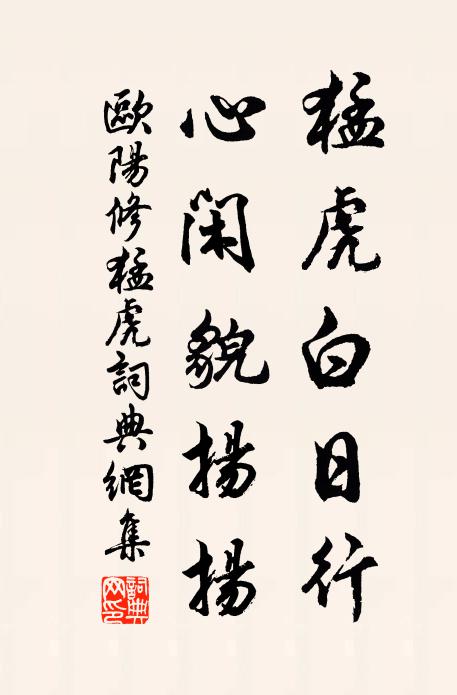 猛虎白日行
心閑貌揚揚
歐陽修猛虎詞典網集
詞典網印